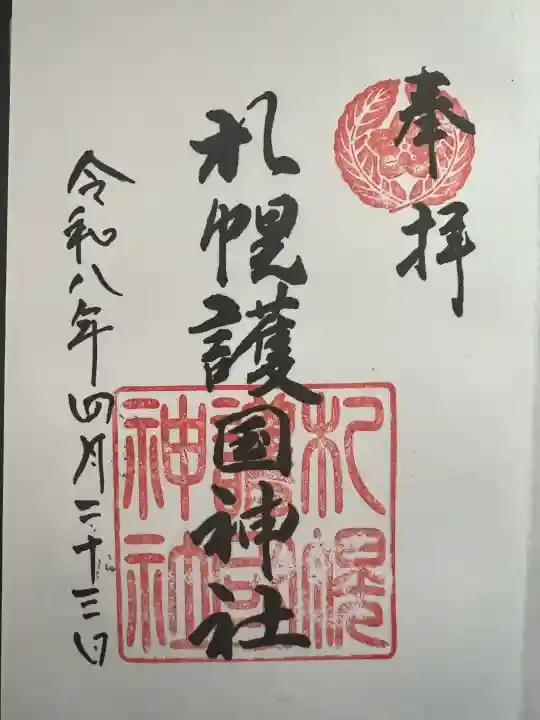 奉拝
札幌護国神社
令和八年四月二十三日
札幌
護国
神社